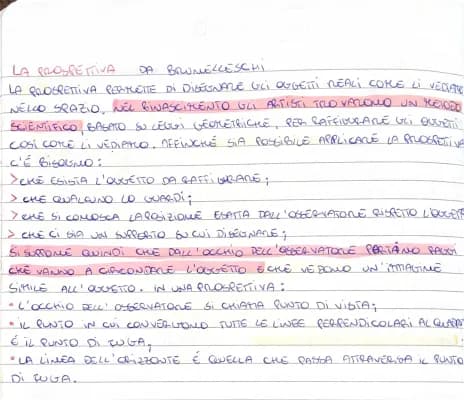 LA PROSPETTIVA DA BRUNELLESCHI
LA PROSPETTIVA PERMETTE DI DISEGNARE GLI OGGETTI REALI COME LI VEDIAMO
NELLO SPAZIO. NEL RINASCIMENTO GLI ARTISTI TROVARONO UN METODO
SCIENTIFICO, BASATO SU LEGGI GEOMETRICHE, PER RAFFIGURARE GLI OGGETTI
COSÌ COME LI VEDIAMO. AFFINCHÈ SIA POSSIBILE APPLICARE LA PROSPETTIVA
C'È BISOGNO:
> CHE ESISTA L'OGGETTO DA RAFFIGURARE;
> CHE QUALCUNO LO GUARDI;
> CHE SI CONOSCA LA POSIZIONE ESATTA DALL'OSSERVATORE RISPETTO L'OGGETTO
> CHE CI SIA UN SUPPORTO SU CUI DISEGNARE;
SI SUPPONE QUINDI CHE DALL'OCCHIO DELL'OSSERVATORE PARTANO RAGGI
CHE VANNO A CIRCONDARE L'OGGETTO E CHE VEDONO UN'IMMAGINE
SIMILE ALL'OGGETTO. IN UNA PROSPETTIVA:
• L'OCCHIO DELL'OSSERVATORE SI CHIAMA PUNTO DI VISTA;
• IL PUNTO IN CUI CONVERGONO TUTTE LE LINEE PERPENDICOLARI AL QUADRO
È IL PUNTO DI FUGA;
• LA LINEA DELL'ORIZZONTE È QUELLA CHE PASSA ATTRAVERSO IL PUNTO
DI FUGA.